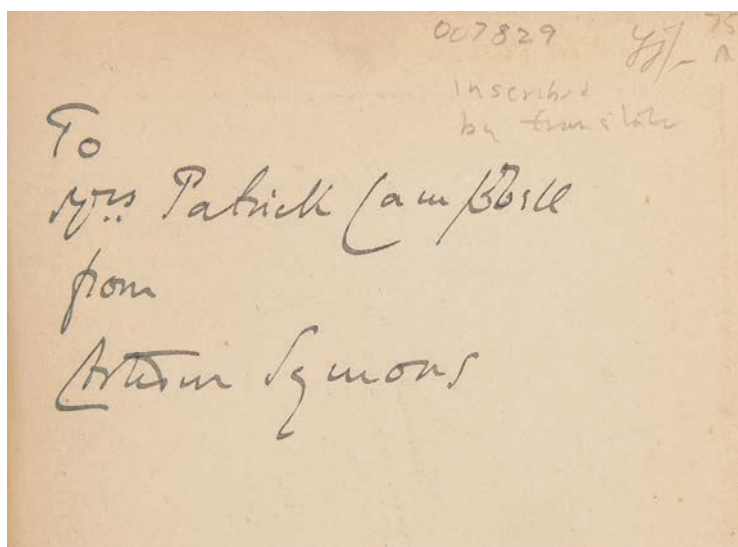 007829
75
Inscribed
by translator
To
Mrs Patrick Campbell
from
Arthur Symons